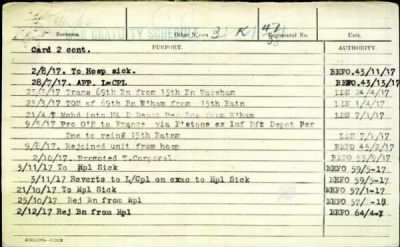 GRATUITY SCHEDULE
Surname. Other Names Regimental No.
Card 2 cont. PURPORT. AUTHORITY.
2/8/17. To Hosp sick. BEFO.43/11/17
28/7/17. APP. L-CPL. BEFO.43/13/17
Trans 69th Bn from 15th Bn Wareham
23/3/17 TOS of 69th Bn W'ham from 15th Batn LDN 1/4/17
LDN 7/1/17
9/5/17 Pro O'S to France via F'stone ex Inf Dft Depot Per
Dne to reinf 15th Batn
9/8/17. Rejoined unit from hosp BEFO 45/2/17
2/10/17. Promoted T.Corporal.
3/11/17 To Hpl Sick BEFO 59/5-17
3/11/17 Reverts to L/Cpl on evac to Hpl Sick BEFO 59/5-17
21/10/17. To Hpl Sick BEFO 57/1-17
25/10/17 Rej Bn from Hpl BEFO 57/
2/12/17 Rej Bn from Hpl BEFO 64/4-